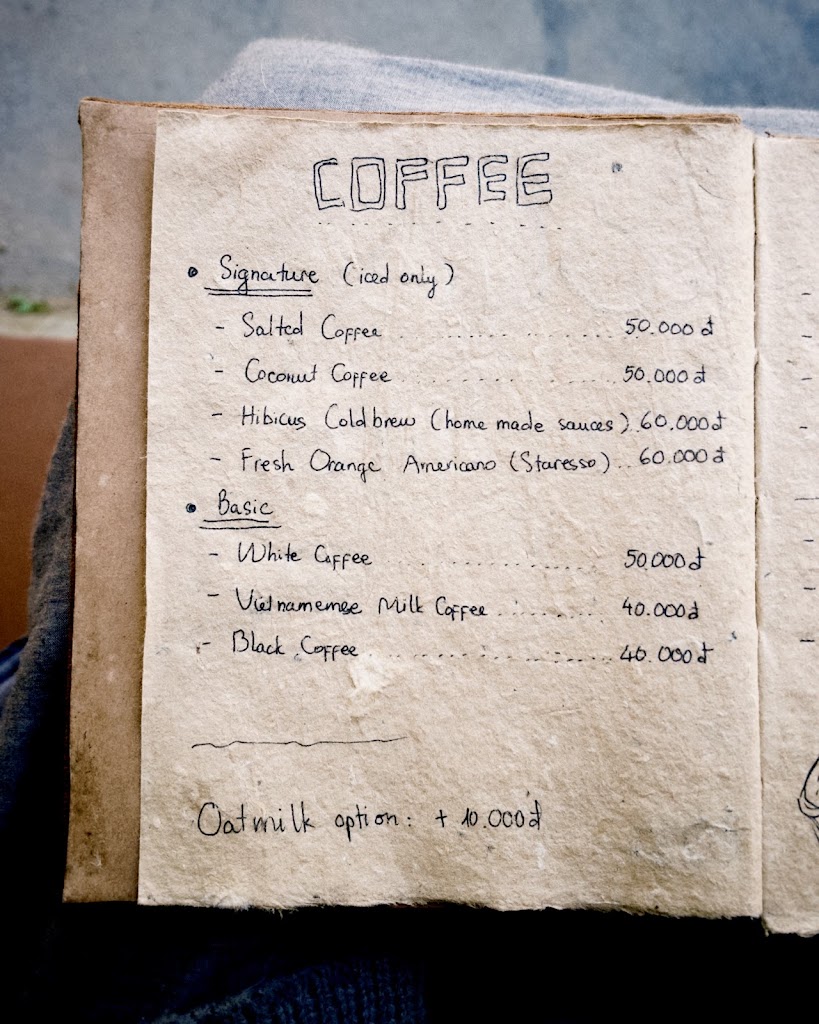 COFFEE
• Signature (iced only)
- Salted Coffee ........... 50.000đ
- Coconut Coffee ........... 50.000đ
- Hibicus Coldbrew (home made sauces). 60.000đ
- Fresh Orange Americano (Staresso).. 60.000đ
• Basic
- White Coffee ........... 50.000đ
- Vietnamemese Milk Coffee ........... 40.000đ
- Black Coffee ........... 40.000đ
Oatmilk option: + 10.000đ